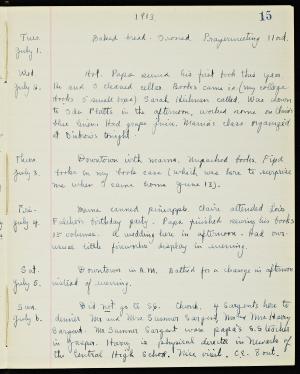 1913.
15
Tues. Baked bread. Ironed. Prayermeeting 11 ad.
July 1.
Wed. Hot. Papa seined his first book this year.
July 2. He and I cleaned cellar. Books came in (my college
books & small ones) Sarah called. Was down
to Ida Platts in the afternoon, worked some on
blue linen. Had grape juice. Mama's class organized
at tonight.
Thurs. Downtown with mama. Unpacked books. Fixed
July 3. books in my book case (which was here to surprise
me when I came home June 13).
Fri. Mama canned pineapple. Claire attended Lois
July 4. birthday party. Papa finished reviewing his books
15 volumes. A wedding here in afternoon. Had our
usual little fireworks display in evening.
Sat. Downtown in A.M. Bathed for a change in afternoon
July 5. instead of evening.
Sun. Did not go to S.S. Church. 4 Sargents here to
July 6. dinner Mr. and Mrs. Sumner Sargent, Mr. & Mrs. Harry
Sargent. Mr. Sumner Sargent was papa's S.S. teacher
in Jasper. Harry is physical director in Newark of
the Central High School. Nice visit. C.E. 8 out.